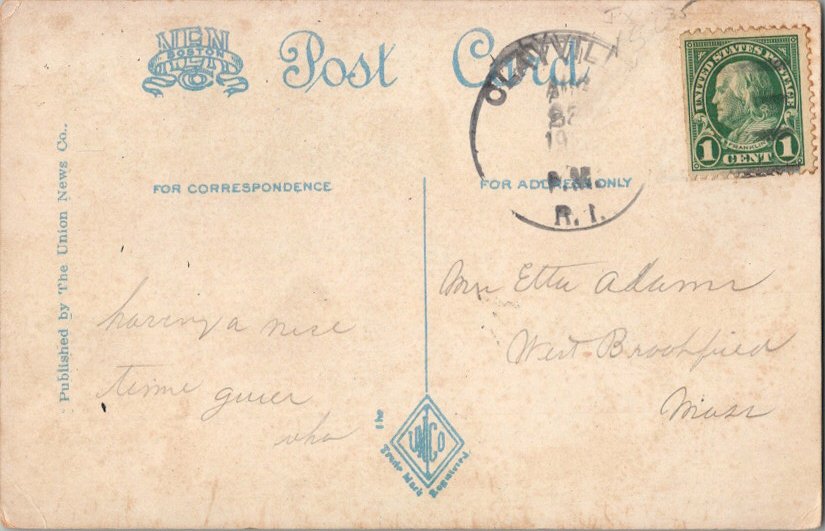 BOSTON
Post Card
CLAYVIL
19
A.M.
R.I.
UNITED STATES POSTAGE
FRANKLIN
1 CENT 1
FOR CORRESPONDENCE
FOR ADDRESS ONLY
Published by The Union News Co..
having a nise
time guier
who
Mrs Etta Adams
West Brookfield
Mass
The
UNCO
Trade Mark Registered